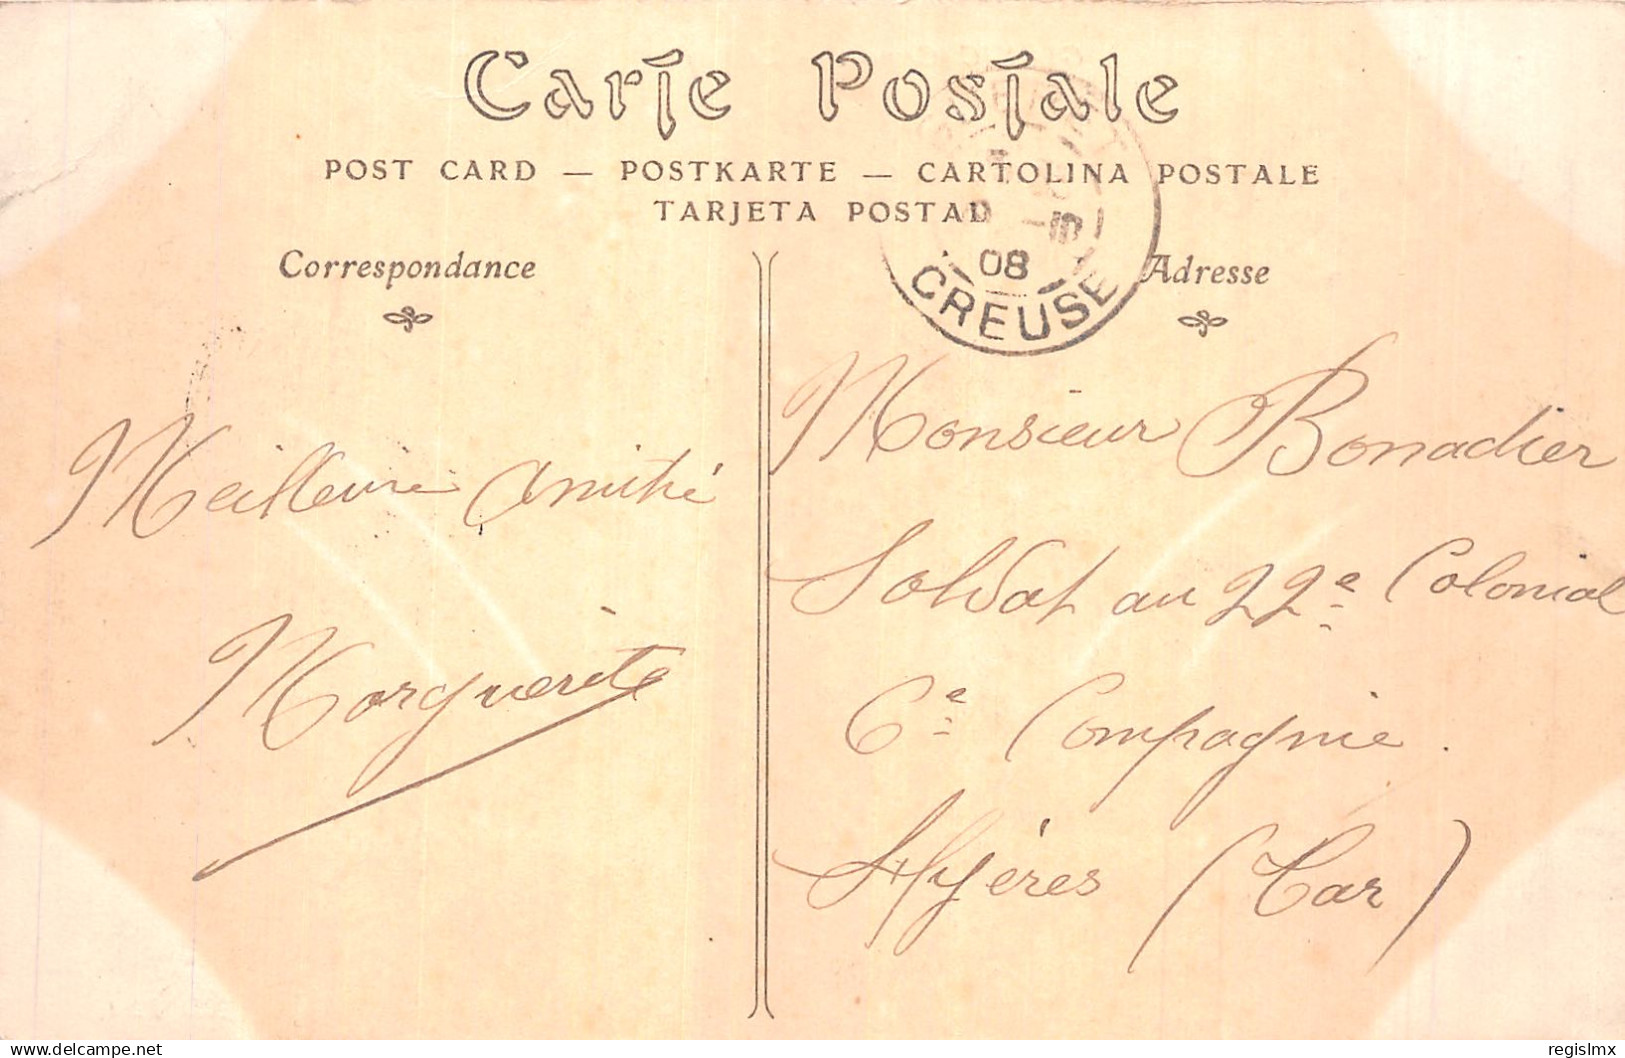 Carte Postale
POST CARD — POSTKARTE — CARTOLINA POSTALE
TARJETA POSTAL
Correspondance
Adresse
08
CREUSE
Meilleure Amitié
Marguerite
Monsieur Bonadier
Soldat au 22e Colonial
6e Compagnie.
Hyères (Var)
www.delcampe.net
regislmx